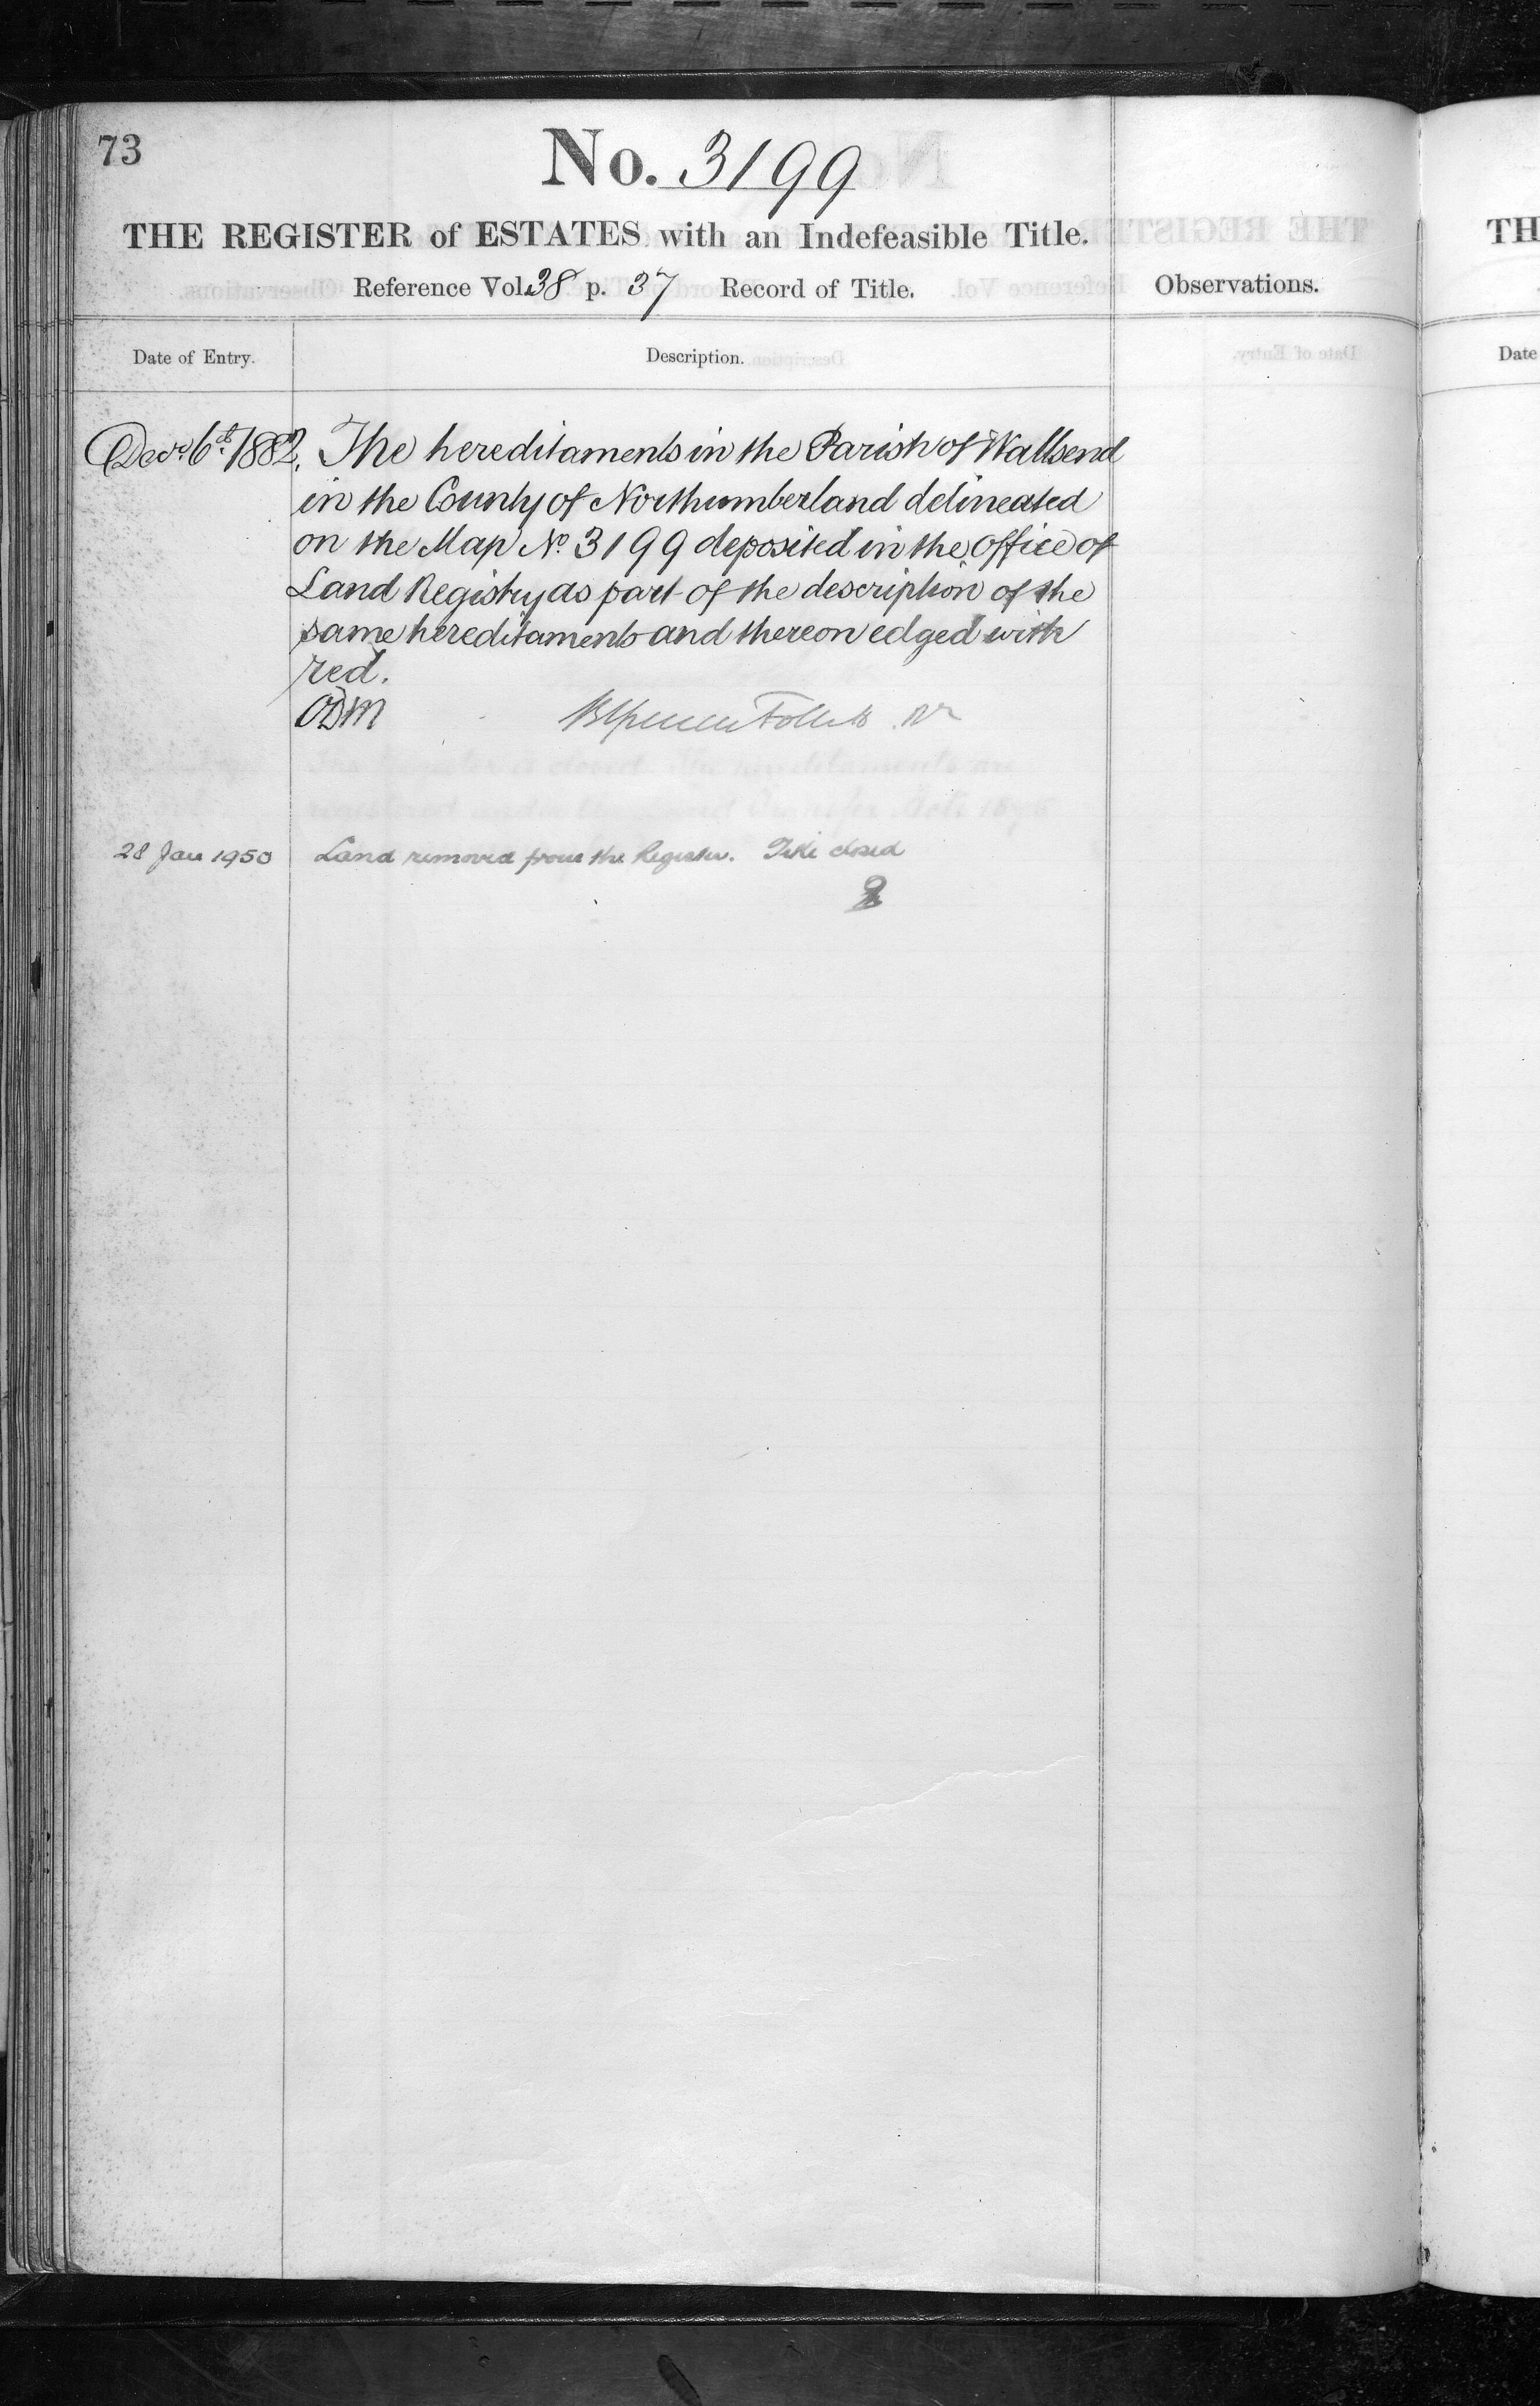 73
No. 3199
THE REGISTER of ESTATES with an Indefeasible Title.
Reference Vol. 38 p. 37 Record of Title.
Observations.
Date of Entry.
Description.
Decr. 6th 1882. The hereditaments in the Parish of Wallsend
in the County of Northumberland delineated
on the Map No. 3199 deposited in the office of
Land Registry as part of the description of the
same hereditaments and thereon edged with
red.
28 Jan 1950 Land removed from the Register. Title closed
TH
Date